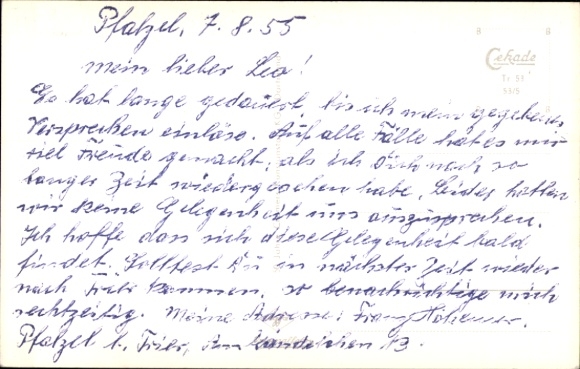 Pfalzel, 7.8.55
Mein lieber Leo!
Es hat lange gedauert bis ich mein gegebenes
Versprechen einlöse. Auf alle Fälle hat es mir
viel Freude gemacht, als ich Dich nach so
langer Zeit wiedergesehen habe. Leider hatten
wir keine Gelegenheit uns auszusprechen.
Ich hoffe dass sich diese Gelegenheit bald
findet. Solltest Du in nächster Zeit wieder
nach Trier kommen, so benachrichtige mich
rechtzeitig. Meine Adresse: Franz
Pfalzel b. Trier, 13.
Cekade
Tr 55
B
B